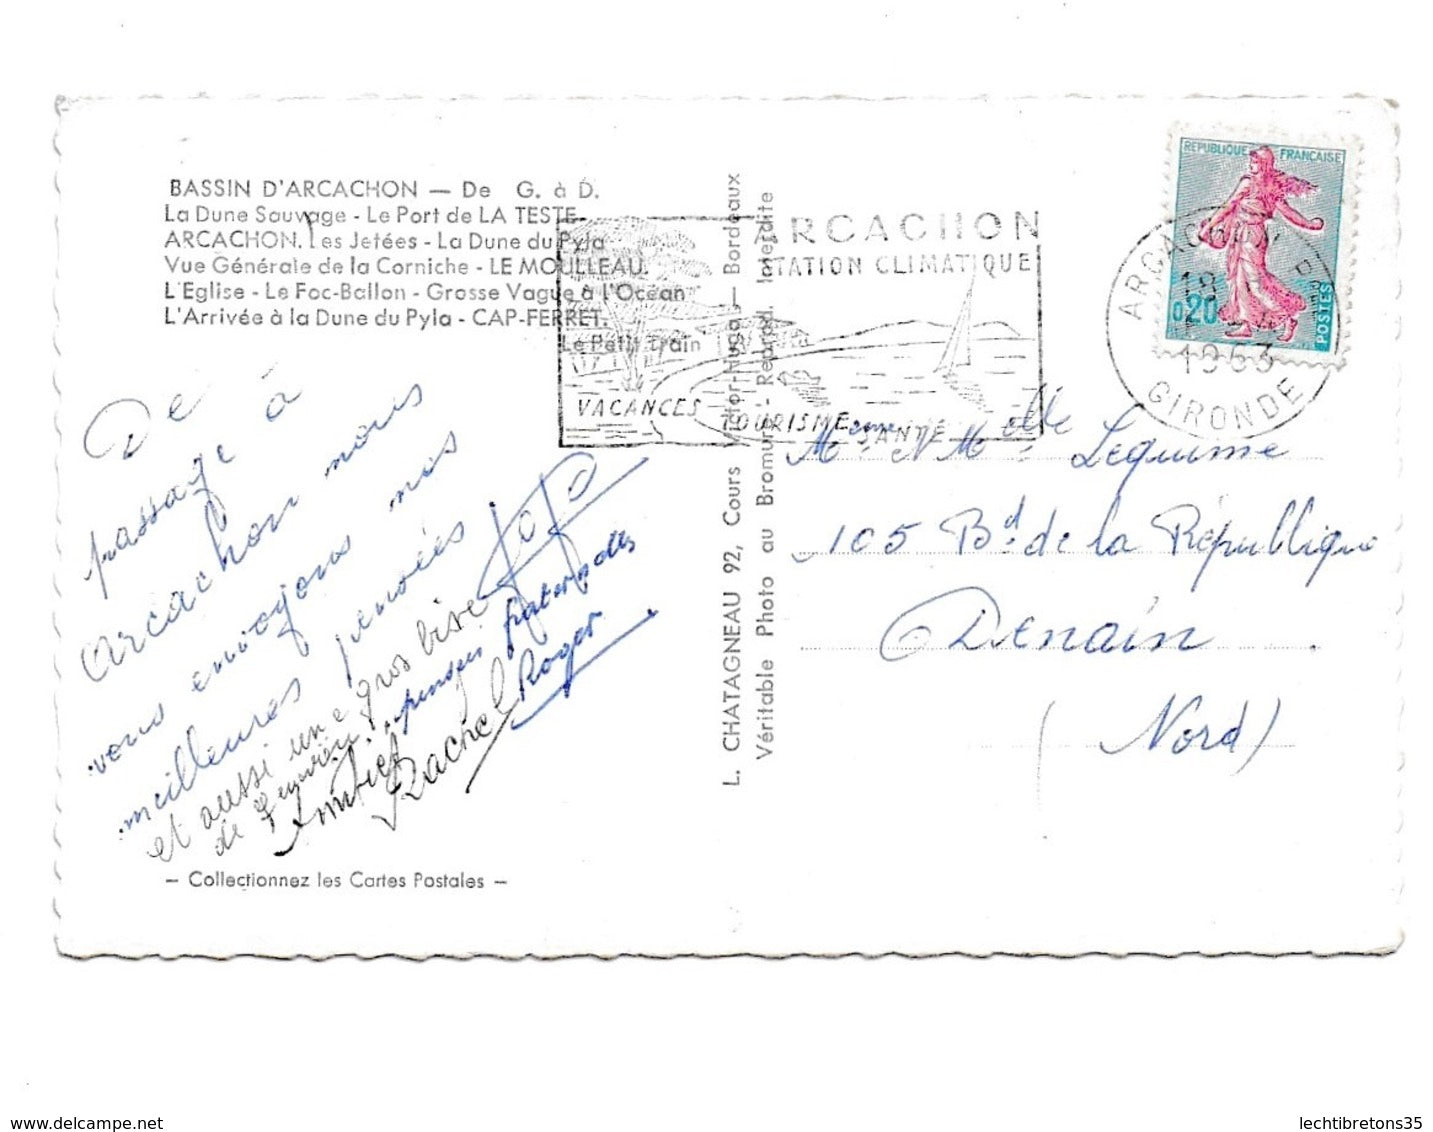 BASSIN D'ARCACHON — De G. à D.
La Dune Sauvage - Le Port de LA TESTE
ARCACHON. Les Jetées - La Dune du Pyla
Vue Générale de la Corniche - LE MOULLEAU.
L'Eglise - Le Foc-Ballon - Grosse Vague à l'Océan
L'Arrivée à la Dune du Pyla - CAP-FERRET.
Le Petit Train
De
passage à
Arcachon nous
vous envoyons nos
meilleures pensées
et aussi une gros bise
de
pensées fraternelles
Rachel
Roger
- Collectionnez les Cartes Postales -
L. CHATAGNEAU 92, Cours Victor-Hugo — Bordeaux
Véritable Photo au Bromure - Reprod. Interdite
ARCACHON
STATION CLIMATIQUE
VACANCES TOURISME SANTÉ
REPUBLIQUE FRANCAISE
0,20
POSTES
ARCACHON
18
1963
GIRONDE
Mme & Melle Lequime
105 Bd. de la République
Denain
(Nord)
lechtibretons35